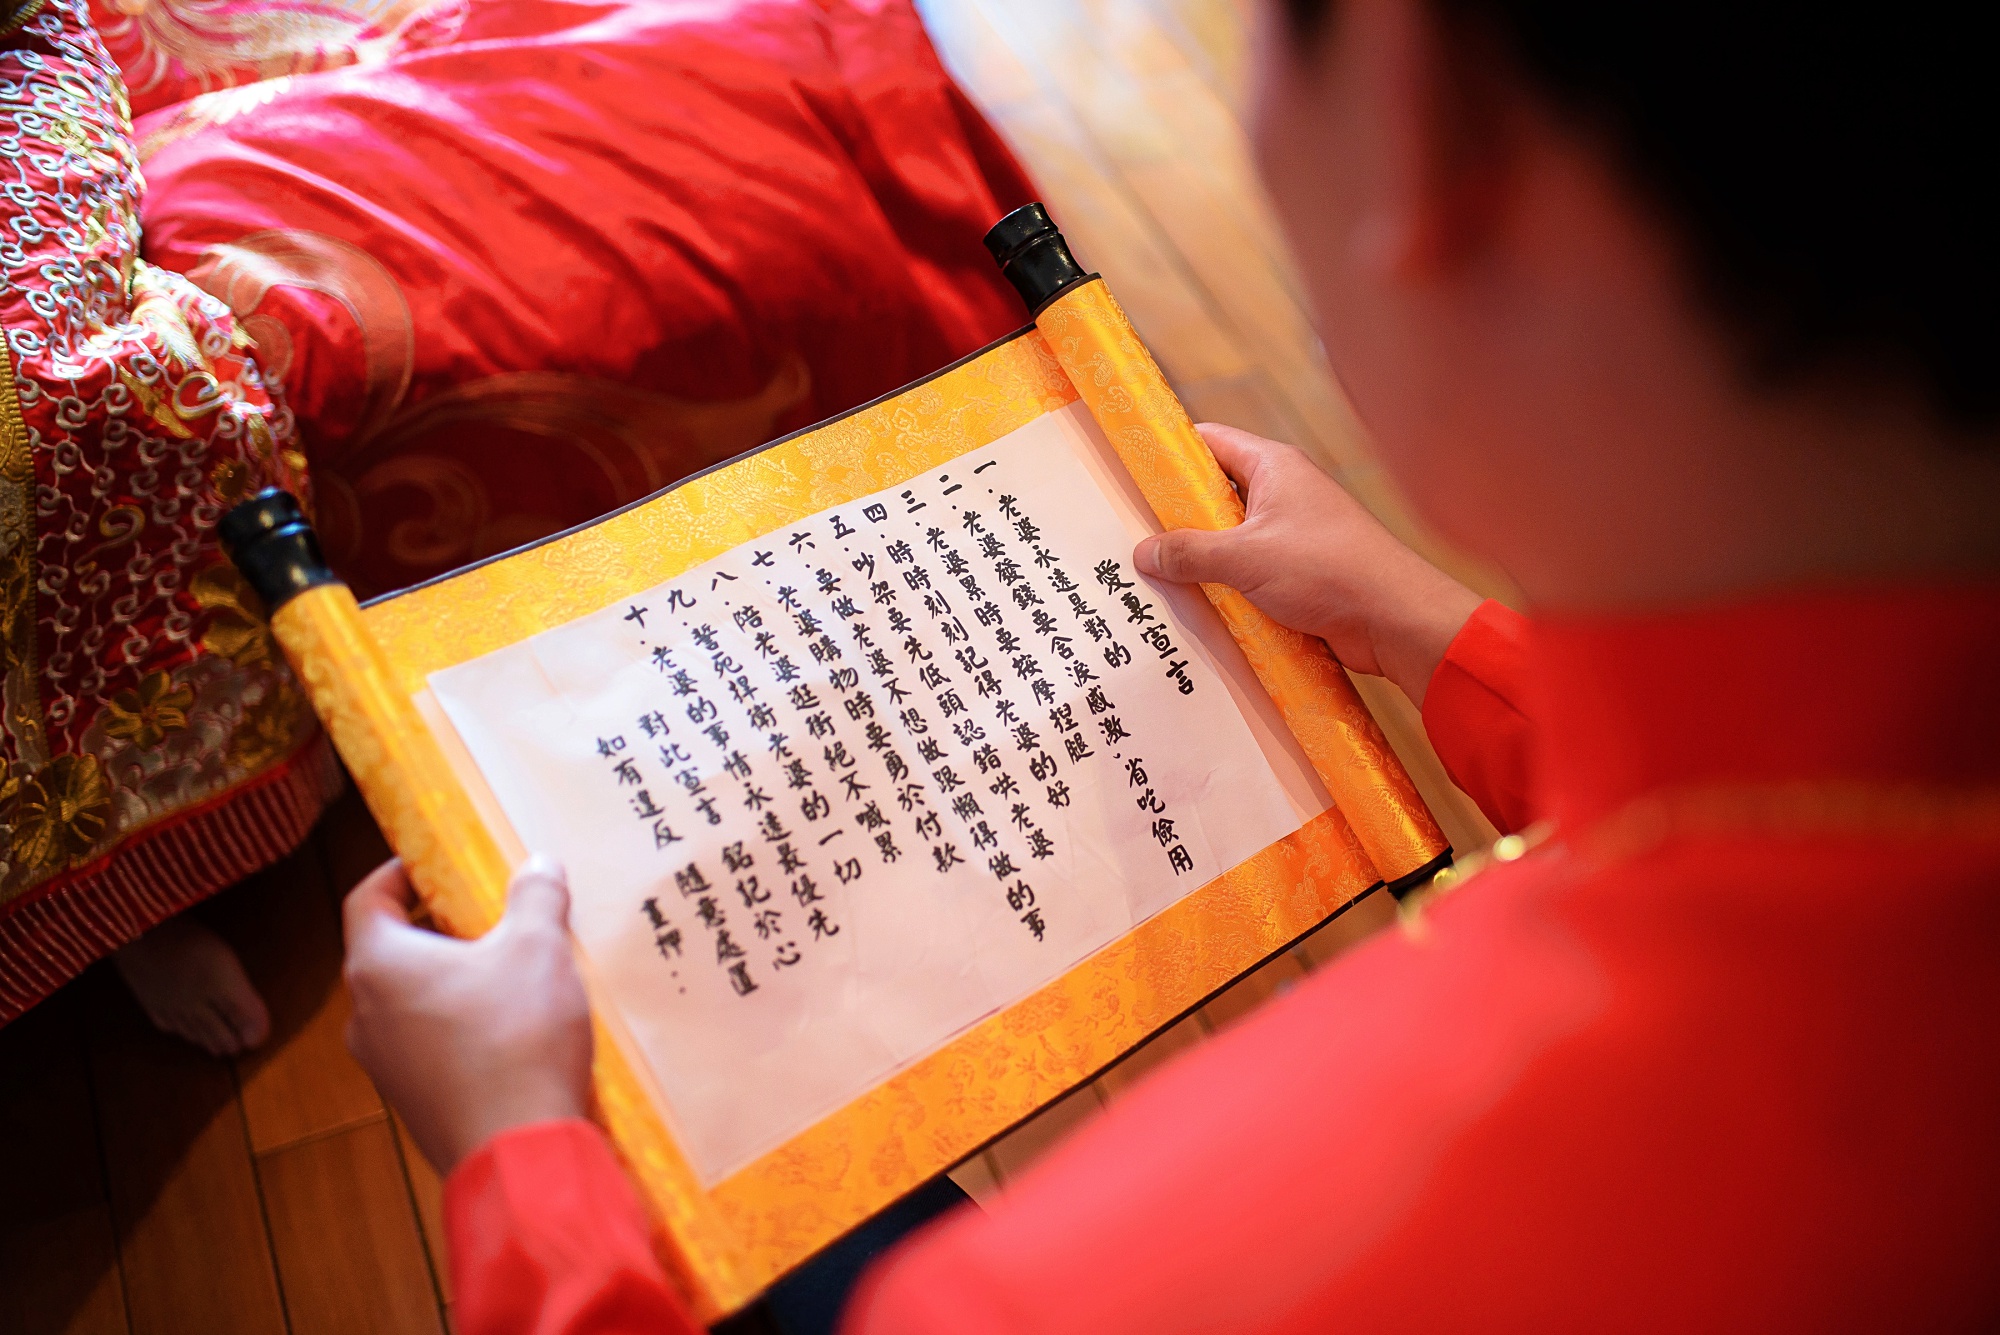 愛妻宣言
一.老婆永遠是對的
二.老婆發錢要含淚感激.省吃儉用
三.老婆累時要按摩捏腿
四.時時刻刻記得老婆的好
五.吵架要先低頭認錯哄老婆
六.要做老婆不想做跟懶得做的事
七.老婆購物時要勇於付款
八.陪老婆逛街絕不喊累
九.誓死捍衛老婆的一切
十.老婆的事情永遠最優先
對此宣言 銘記於心
如有違反 隨意處置
畫押：